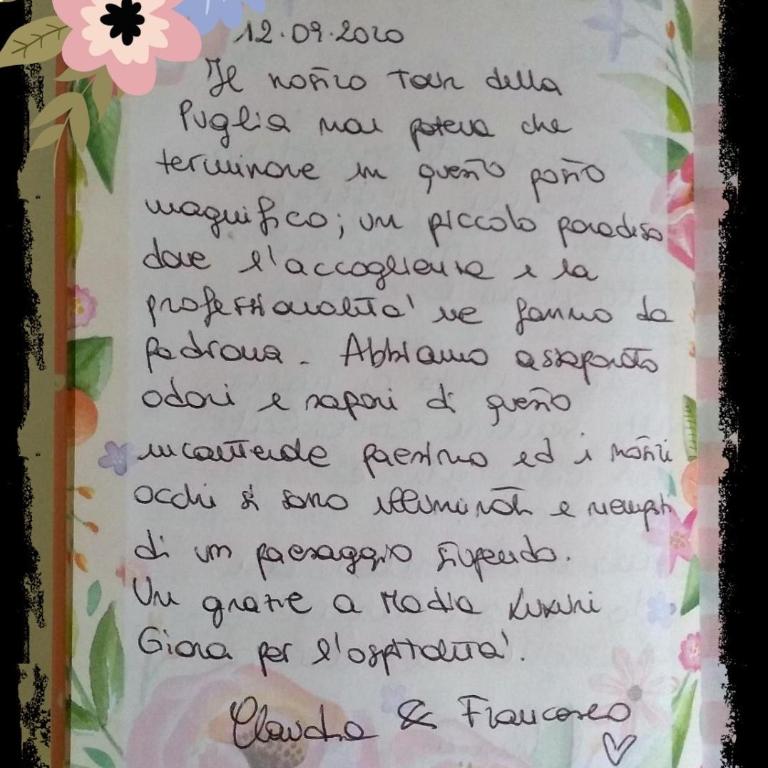 12.09.2020
Il nostro tour della
Puglia non poteva che
terminare in questo posto
magnifico; un piccolo paradiso
dove l'accoglienza e la
professionalità ne fanno da
padrona. Abbiamo assaporato
odori e sapori di questo
incantevole paesino ed i nostri
occhi si sono illuminati e riempiti
di un paesaggio stupendo.
Un grazie a Madia
Gioia per l'ospitalità.
Claudia & Francesco